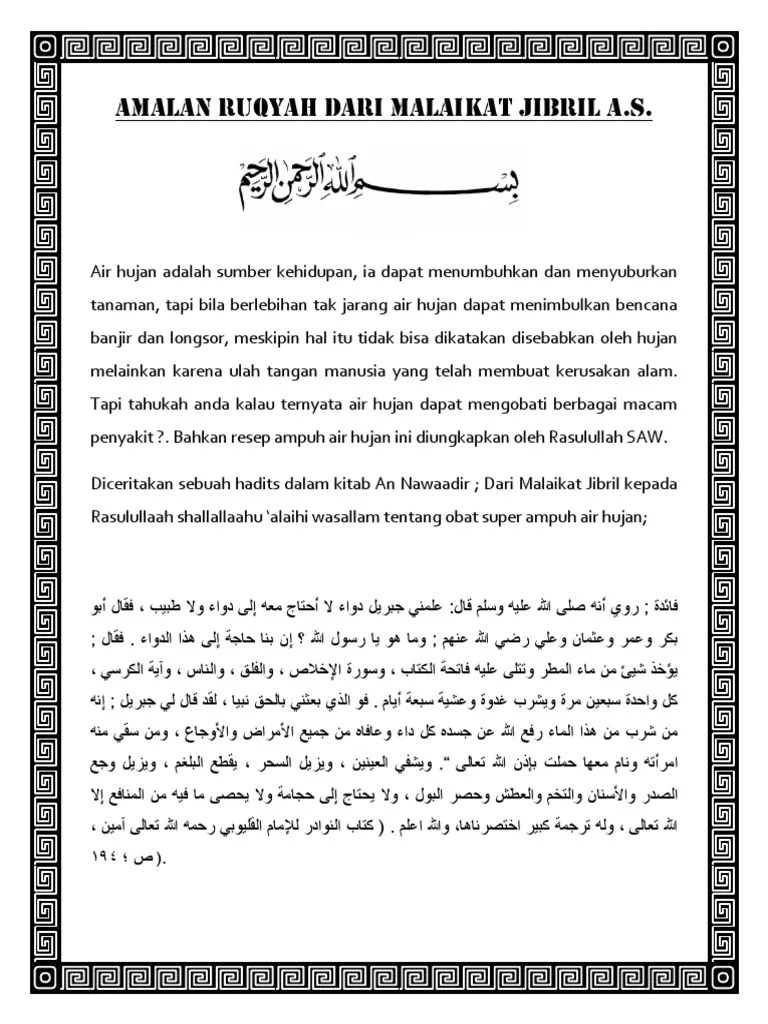 AMALAN RUQYAH DARI MALAIKAT JIBRIL A.S.
بِسْمِ اللهِ الرَّحْمٰنِ الرَّحِيمِ
Air hujan adalah sumber kehidupan, ia dapat menumbuhkan dan menyuburkan
tanaman, tapi bila berlebihan tak jarang air hujan dapat menimbulkan bencana
banjir dan longsor, meskipin hal itu tidak bisa dikatakan disebabkan oleh hujan
melainkan karena ulah tangan manusia yang telah membuat kerusakan alam.
Tapi tahukah anda kalau ternyata air hujan dapat mengobati berbagai macam
penyakit ?. Bahkan resep ampuh air hujan ini diungkapkan oleh Rasulullah SAW.
Diceritakan sebuah hadits dalam kitab An Nawaadir ; Dari Malaikat Jibril kepada
Rasulullaah shallallaahu ‘alaihi wasallam tentang obat super ampuh air hujan;
فائدة ; روي أنه صلى الله عليه وسلم قال: علمني جبريل دواء لا أحتاج معه إلى دواء ولا طبيب ، فقال أبو
بكر وعمر وعثمان وعلي رضي الله عنهم ; وما هو يا رسول الله ؟ إن بنا حاجة إلى هذا الدواء . فقال ;
يؤخذ شيئ من ماء المطر وتتلى عليه فاتحة الكتاب ، وسورة الإخلاص ، والفلق ، والناس ، وآية الكرسي ،
كل واحدة سبعين مرة ويشرب غدوة وعشية سبعة أيام . فو الذي بعثني بالحق نبيا ، لقد قال لي جبريل ; إنه
من شرب من هذا الماء رفع الله عن جسده كل داء وعافاه من جميع الأمراض والأوجاع ، ومن سقي منه
امرأته ونام معها حملت بإذن الله تعالى “. ويشفي العينين ، ويزيل السحر ، يقطع البلغم ، ويزيل وجع
الصدر والأسنان والتخم والعطش وحصر البول ، ولا يحتاج إلى حجامة ولا يحصى ما فيه من المنافع إلا
الله تعالى ، وله ترجمة كبير اختصرناها، والله اعلم . ( كتاب النوادر للإمام القليوبي رحمه الله تعالى آمين ،
ص ؛ ١٩٤ ).